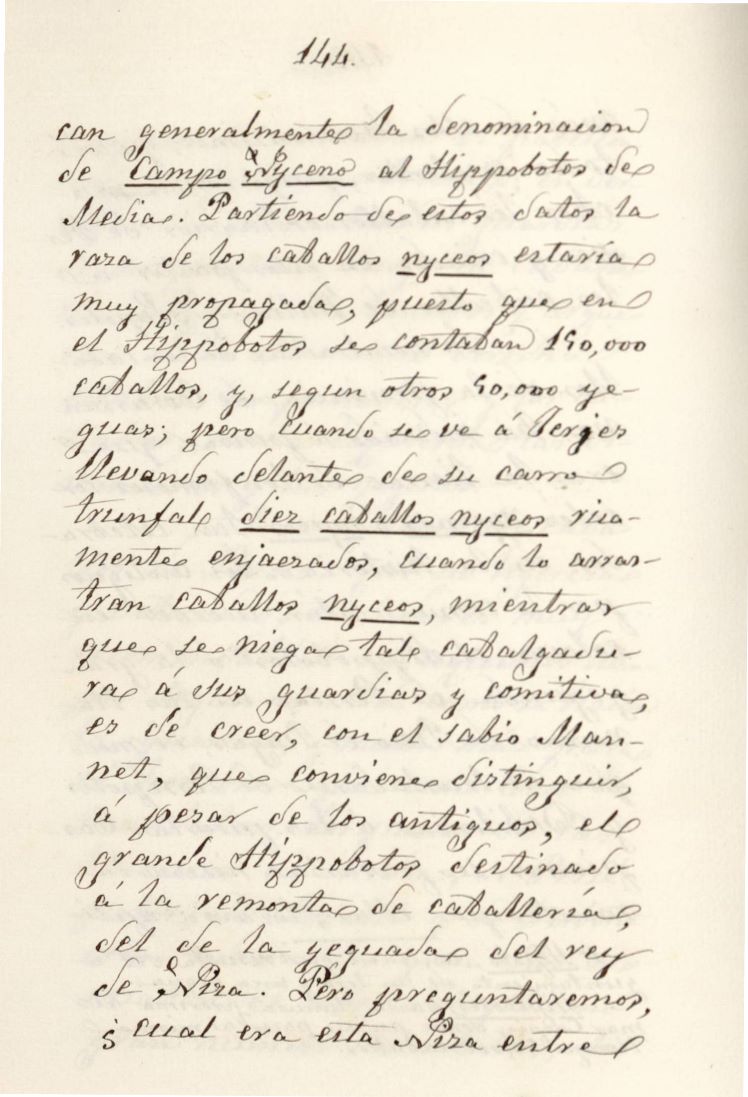 144.
can generalmente la denominacion
de Campo Nyceno al Hippobotos de
Media. Partiendo de estos datos la
raza de los caballos nyceos estaría
muy propagada, puesto que en
el Hippobotos se contaban 150,000
caballos, y, segun otros 50,000 ye-
guas; pero cuando se ve á Jerjes
llevando delante de su carro
trunfal diez caballos nyceos rica-
mente enjaezados, cuando lo arras-
tran caballos nyceos, mientras
que se niega tal cabalgadu-
ra á sus guardias y comitiva,
es de creer, con el sabio Man-
net, que conviene distinguir,
á pesar de los antiguos, el
grande Hippobotos destinado
á la remonta de caballería,
del de la yeguada del rey
de Niza. Pero preguntaremos,
¿cual era esta Niza entre